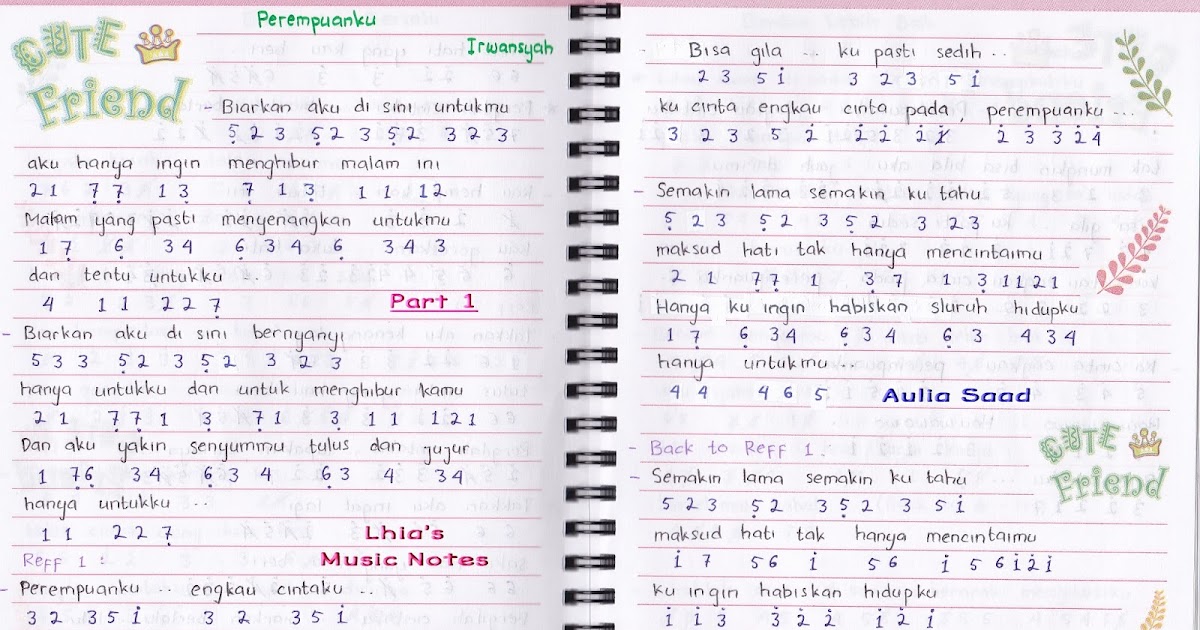 CUTE Friend
Perempuanku
Irwansyah
- Biarkan aku di sini untukmu
5̣ 2 3 5̣ 2 3 5̣ 2 3 2 3
aku hanya ingin menghibur malam ini
2 1 7̣ 7̣ 1 3̣ 7̣ 1 3̣ 1 1 1 2
Malam yang pasti menyenangkan untukmu
1 7̣ 6̣ 3 4 6̣ 3 4 6̣ 3 4 3
dan tentu untukku ..
4 1 1 2 2 7̣
Part 1
- Biarkan aku di sini bernyanyi
5 3 3 5̣ 2 3 5̣ 2 3 2 3
hanya untukku dan untuk menghibur kamu
2 1 7̣ 7̣ 1 3̣ 7̣ 1 3̣ 1 1 1 2 1
Dan aku yakin senyummu tulus dan jujur
1 7̣ 6̣ 3 4 6̣ 3 4 6̣ 3 4 3 4
hanya untukku ..
1 1 2 2 7̣
Lhia's
Music Notes
Reff 1 :
- Perempuanku .. engkau cintaku ..
3 2 3 5 1̇ 3 2 3 5 1̇
- Bisa gila .. ku pasti sedih ..
2 3 5 1̇ 3 2 3 5 1̇
ku cinta engkau cinta pada, perempuanku ...
3 2 3 5 1̇ 2̇ 1̇ 1̇ 1̇ 2̇ 3̇ 3̇ 2̇ 4̇
- Semakin lama semakin ku tahu
5̣ 2 3 5̣ 2 3 5̣ 2 3 2 3
maksud hati tak hanya mencintaimu
2 1 7̣ 7̣ 1 3̣ 7̣ 1 3̣ 1 1 2 1
Hanya ku ingin habiskan sluruh hidupku
1 7̣ 6̣ 3 4 6̣ 3 4 6̣ 3 4 3 4
hanya untukmu ...
4 4 4 6 5
Aulia Saad
- Back to Reff 1 .
CUTE Friend
- Semakin lama semakin ku tahu
5 2 3 5̣ 2 3 5̣ 2 3 5 1̇
maksud hati tak hanya mencintaimu
1̇ 7 5 6 1̇ 5 6 1̇ 5 6 1̇ 2̇ 1̇
ku ingin habiskan hidupku
1̇ 1̇ 3̇ 3̇ 2̇ 2̇ 1̇ 2̇ 1̇